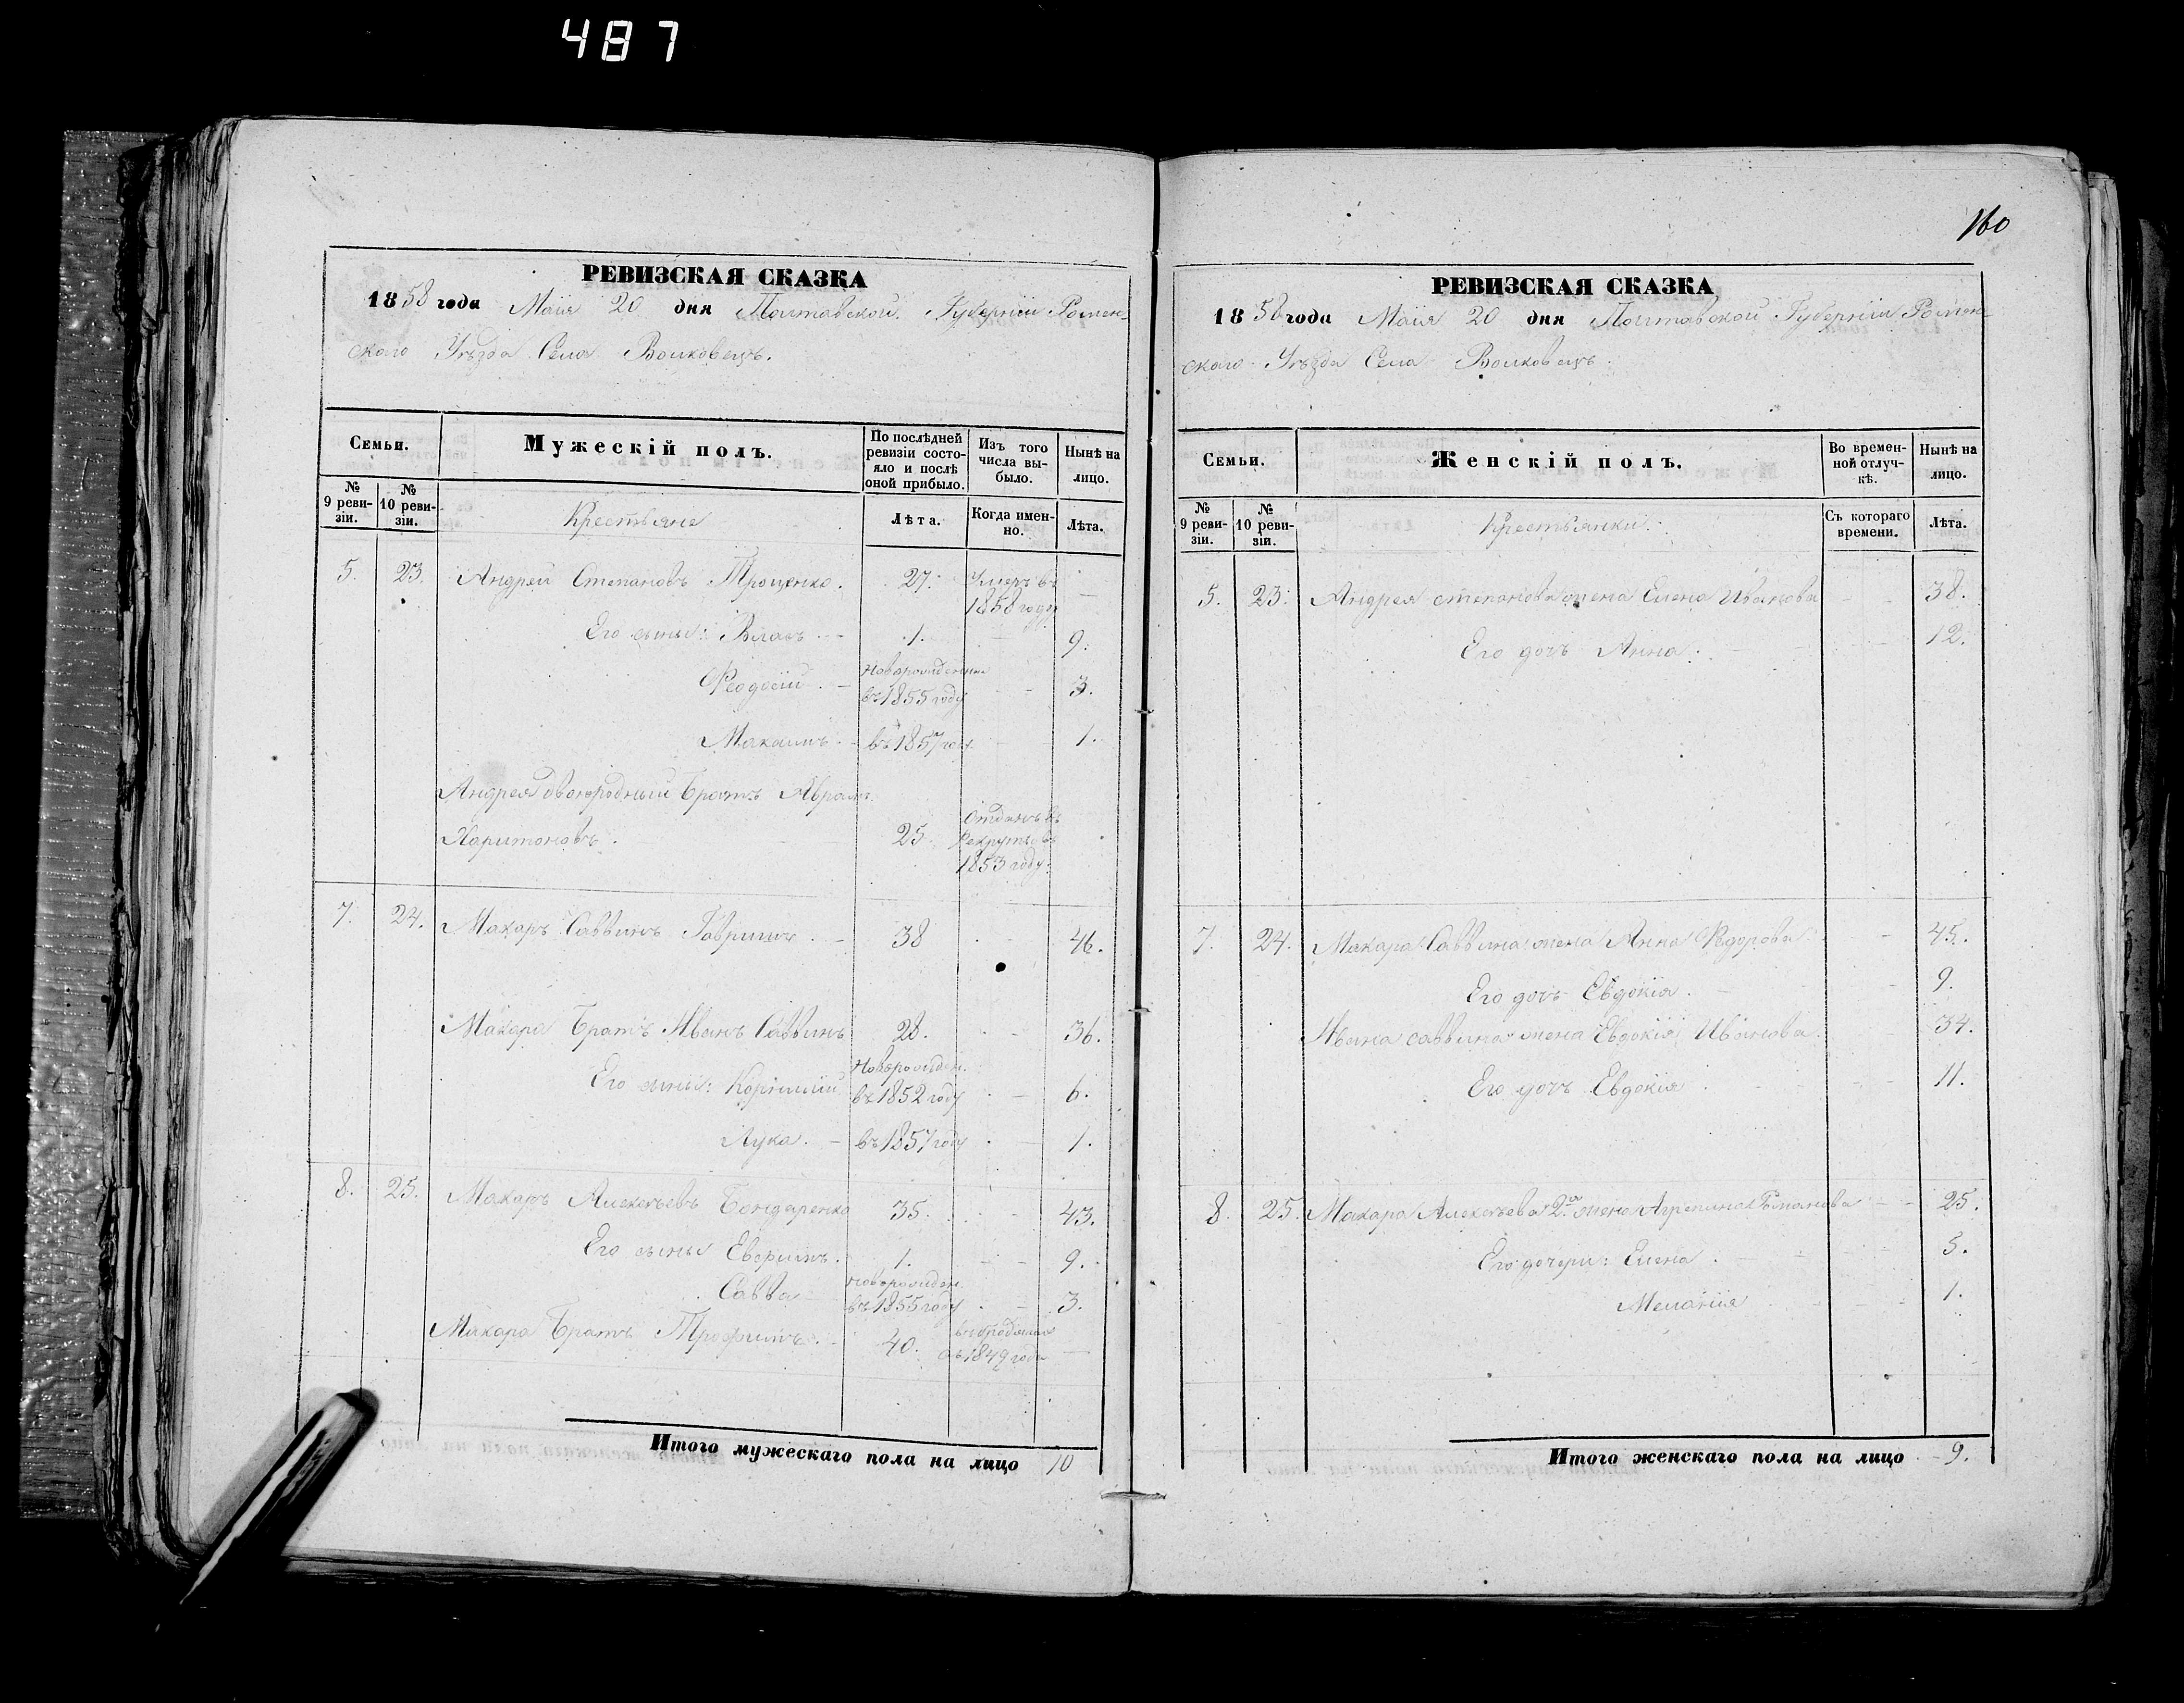 487
РЕВИЗСКАЯ СКАЗКА
1858 года Маія 20 дня Полтавской Губерніи Ромен-
скаго Уѣзда Села Волковецъ.
Семьи.
Мужескій полъ.
По послѣдней ревизіи состо-
яло и послѣ оной прибыло.
Изъ того числа вы-
было.
Нынѣ на лицо.
№ 9 реви-
зіи.
№ 10 реви-
зіи.
Крестьяне
Лѣта.
Когда имен-
но.
Лѣта.
5. 23. Андрей Степановъ Троценко. 27. Умеръ въ 1858 году —
Его сыны: Власъ 1. 9.
Феодосій. Новорожденный въ 1855 году 3.
Максимъ. въ 1857 году 1.
Андрея двоюродный братъ Аврамъ
Харитоновъ. 25. Отданъ въ рекруты въ 1853 году.
7. 24. Макаръ Саввинъ 38 46.
Макара братъ Иванъ Саввинъ 28. 36.
Его сыны: Корнилій Новорожден. въ 1852 году 6.
Лука. въ 1857 году 1.
8. 25. Макаръ Алексѣевъ Бондаренко 35. 43.
Его сыны 1. 9.
Савва Новорожден. въ 1855 году 3.
Макара братъ Трофимъ. 40. съ 1849 года —
Итого мужескаго пола на лицо 10
160
РЕВИЗСКАЯ СКАЗКА
1858 года Маія 20 дня Полтавской Губерніи Ромен-
скаго Уѣзда Села Волковецъ.
Семьи.
Женскій полъ.
Во времен-
ной отлуч-
кѣ.
Нынѣ на лицо.
№ 9 реви-
зіи.
№ 10 реви-
зіи.
Крестьянки.
Съ котораго времени.
Лѣта.
5. 23. Андрея Степанова жена Елена Иванова 38.
Его дочь Анна. 12.
7. 24. Макара Саввина жена Анна Федорова 45.
Его дочь Евдокія. 9.
Ивана Саввина жена Евдокія Иванова 34.
Его дочь Евдокія 11.
8. 25. Макара Алексѣева 2я жена Агрепина Романова 25.
Его дочери: Елена 5.
Меланія 1.
Итого женскаго пола на лицо 9.